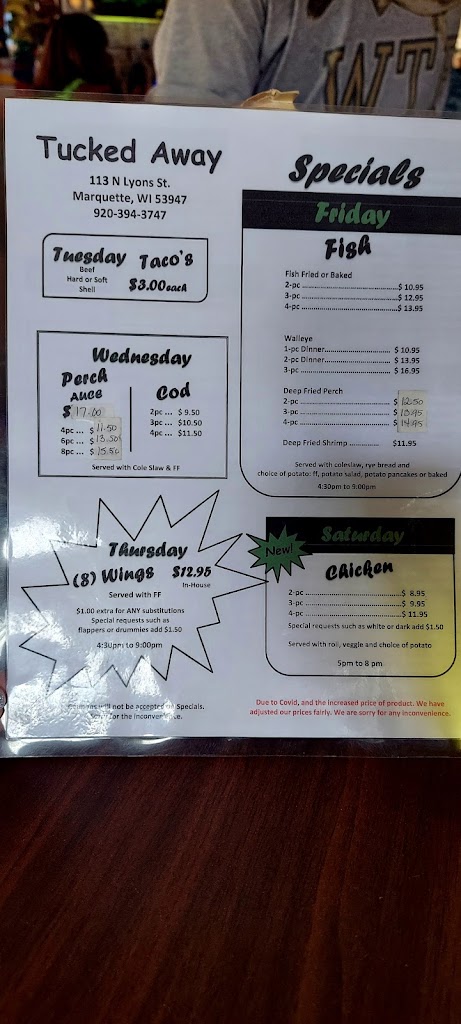 WT
Tucked Away
113 N Lyons St.
Marquette, WI 53947
920-394-3747
Tuesday Taco's
Beef
Hard or Soft
Shell
$3.00each
Wednesday
Perch
AUCE
$ 17.00
4pc ... $ 11.50
6pc ... $ 13.50
8pc ... $ 15.50
Cod
2pc ... $ 9.50
3pc ... $10.50
4pc ... $11.50
Served with Cole Slaw & FF
Thursday
(8) Wings $12.95
In-House
Served with FF
$1.00 extra for ANY substitutions
Special requests such as
flappers or drummies add $1.50
4:30pm to 9:00pm
Coupons will not be accepted on Specials.
Sorry for the inconvenience.
Specials
Friday
Fish
Fish Fried or Baked
2-pc ...$ 10.95
3-pc ...$ 12.95
4-pc ...$ 13.95
Walleye
1-pc Dinner... $ 10.95
2-pc Dinner... $ 13.95
3-pc ... $ 16.95
Deep Fried Perch
2-pc ... $ 12.50
3-pc ... $ 13.95
4-pc ... $ 14.95
Deep Fried Shrimp ... $11.95
Served with coleslaw, rye bread and
choice of potato: ff, potato salad, potato pancakes or baked
4:30pm to 9:00pm
New!
Saturday
Chicken
2-pc ...$ 8.95
3-pc ...$ 9.95
4-pc ...$ 11.95
Special requests such as white or dark add $1.50
Served with roll, veggie and choice of potato
5pm to 8 pm
Due to Covid, and the increased price of product. We have
adjusted our prices fairly. We are sorry for any inconvenience.